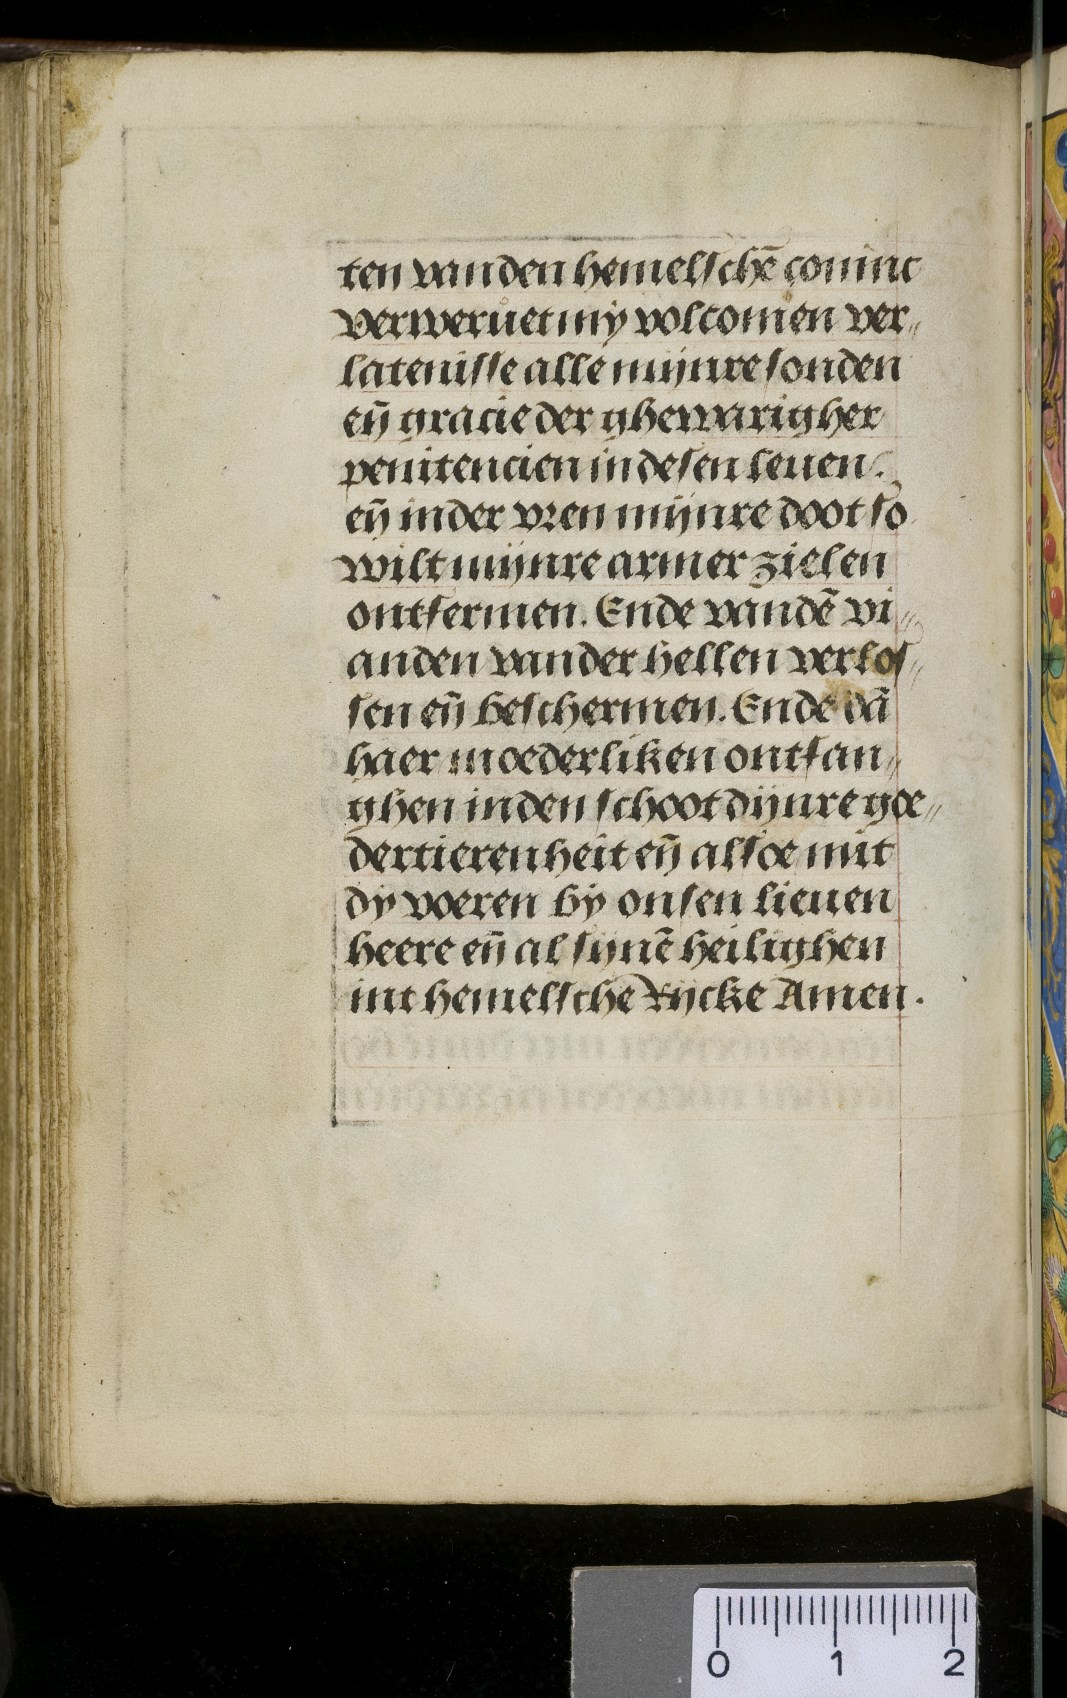 ten van den hemelschē coninc
verweruet mÿ volcomen ver„
latenisse alle mijnre sonden
eñ gracie der ghewarigher
penitencien in desen leuen.
eñ in der vren mijnre doot so
wilt mijnre armer zielen
ontfermen. Ende vandē vi„
anden van der hellen verlos„
sen eñ beschermen. Ende dā
haer moederliken ontfan„
ghen in den schoot dijnre goe„
dertierenheit eñ alsoe mit
dÿ voeren bÿ onsen lieuen
heere eñ al sijnē heilighen
int hemelsche Rijcke Amen.
0 1 2